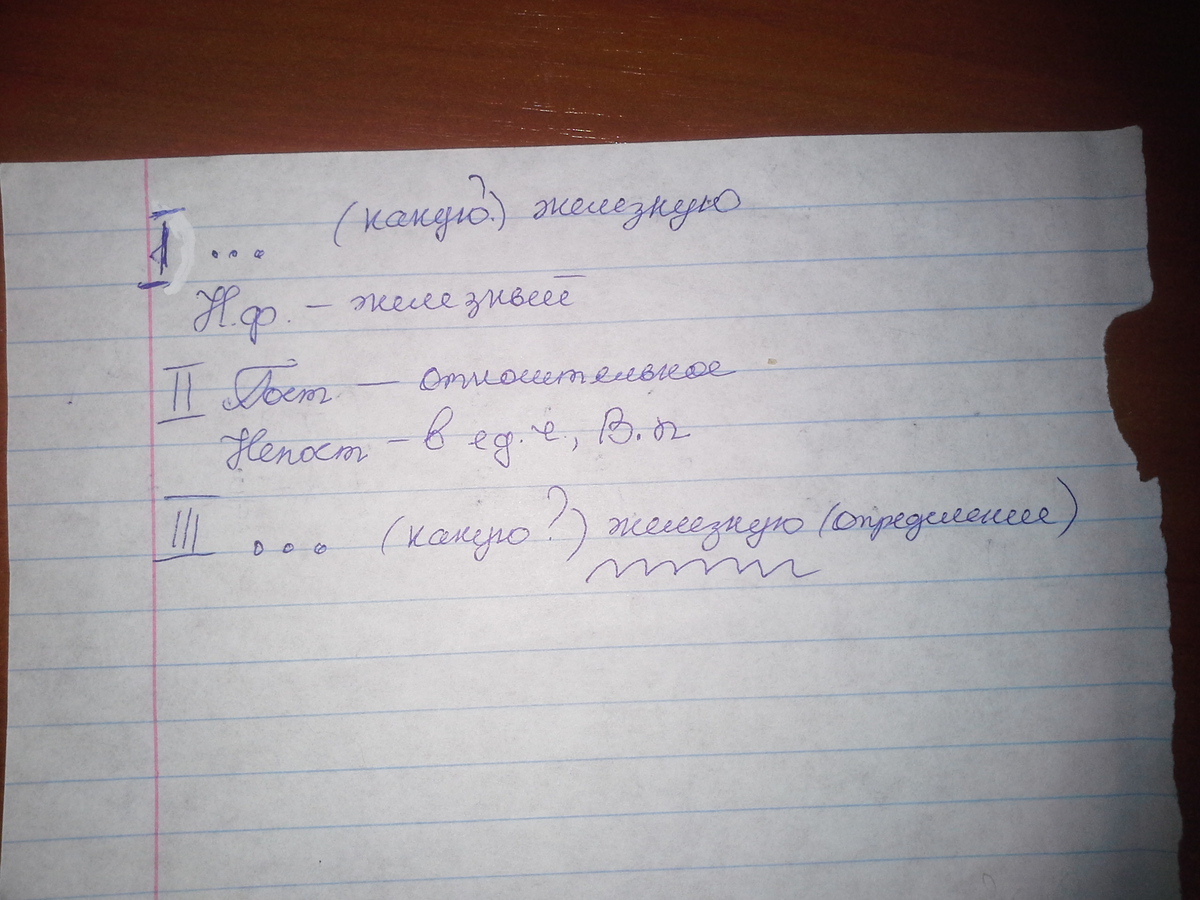 I ... (какую?) железную
Н.ф. – железный
II Пост – относительное
Непост – в ед.ч., В.п
III ... (какую?) железную (определение)